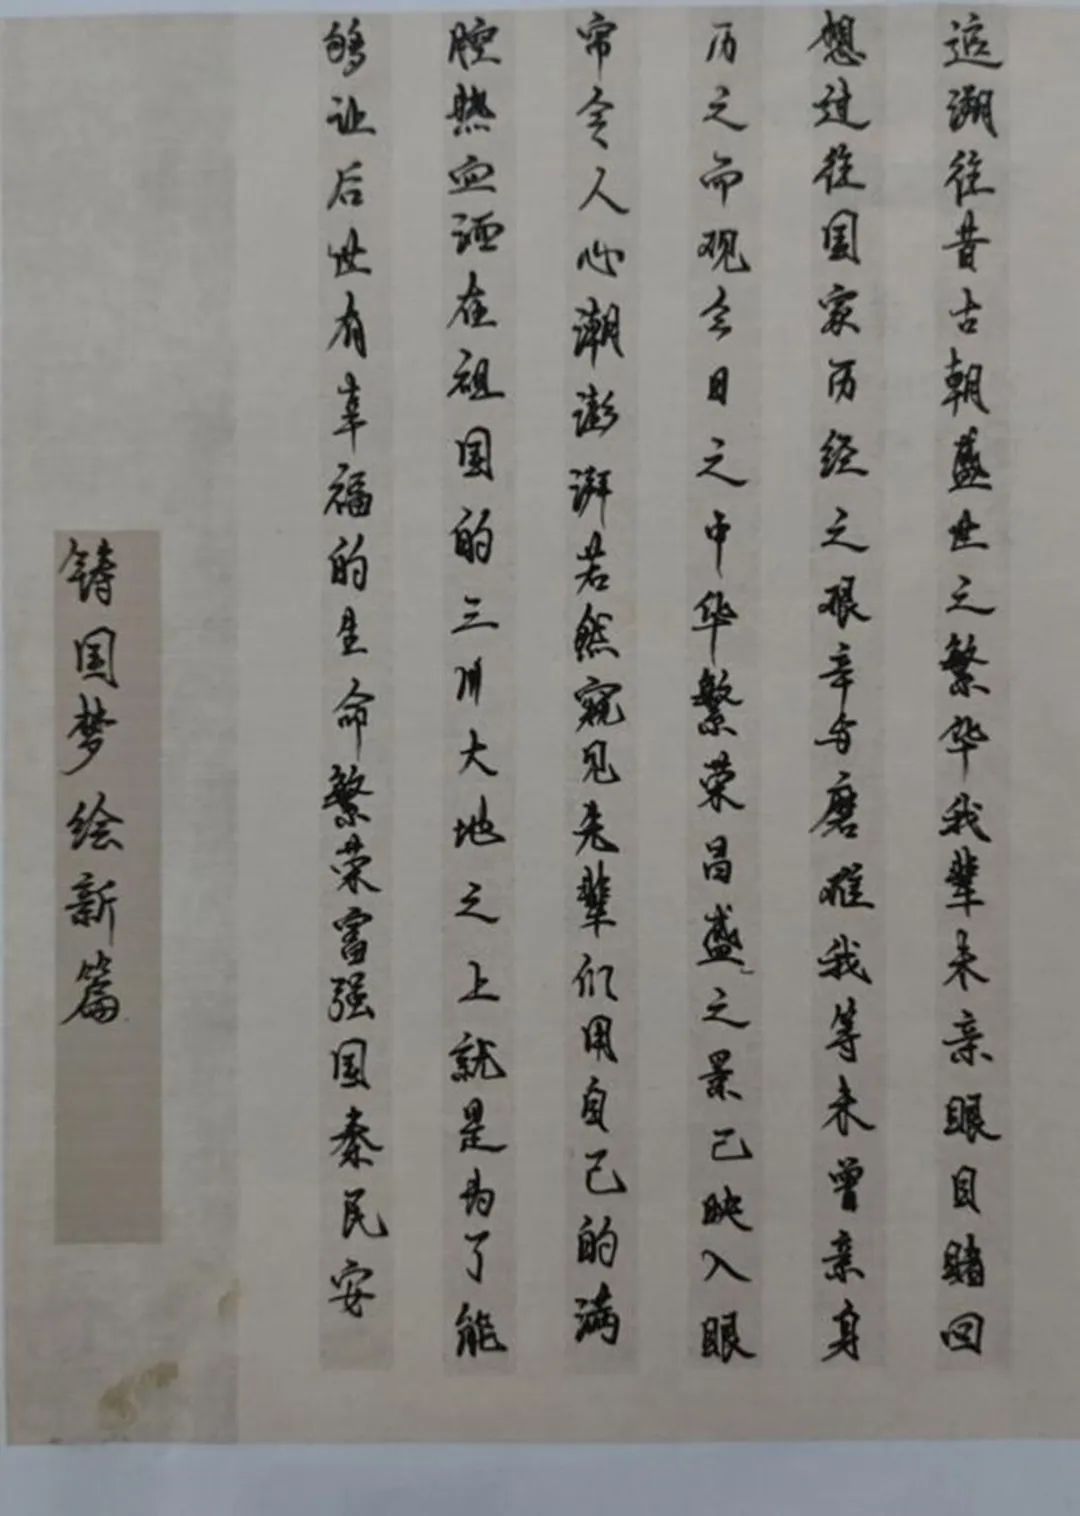 追溯往昔古朝盛世之繁华我辈未亲眼目睹回
想过往国家历经之艰辛与磨难我等未曾亲身
历之而观今日之中华繁荣昌盛之景已映入眼
帘令人心潮澎湃若然窥见先辈们用自己的满
腔热血洒在祖国的三川大地之上就是为了能
够让后世有幸福的生命繁荣富强国泰民安
铸国梦绘新篇